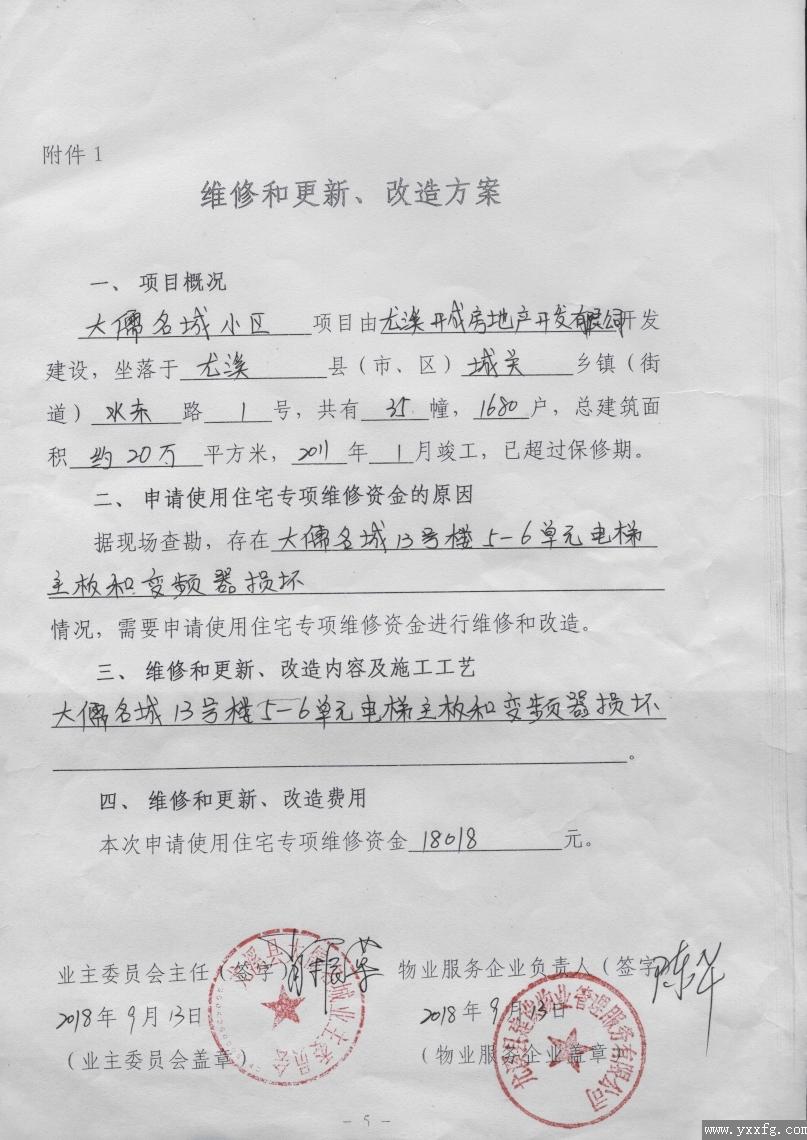 附件1
维修和更新、改造方案
一、项目概况
大儒名城小区 项目由尤溪开成房地产开发有限公司开发
建设，坐落于 尤溪 县（市、区）城关 乡镇（街
道）水东 路 1 号，共有 35 幢，1680 户，总建筑面
积 约20万 平方米，2011 年 1 月竣工，已超过保修期。
二、申请使用住宅专项维修资金的原因
据现场查勘，存在大儒名城13号楼5-6单元电梯
主板和变频器损坏
情况，需要申请使用住宅专项维修资金进行维修和改造。
三、维修和更新、改造内容及施工工艺
大儒名城13号楼5-6单元电梯主板和变频器损坏
。
四、维修和更新、改造费用
本次申请使用住宅专项维修资金 18018 元。
业主委员会主任（签字） 物业服务企业负责人（签字）
2018年9月13日 2018年9月13日
（业主委员会盖章） （物业服务企业盖章）
- 5 -
www.yxxfg.com